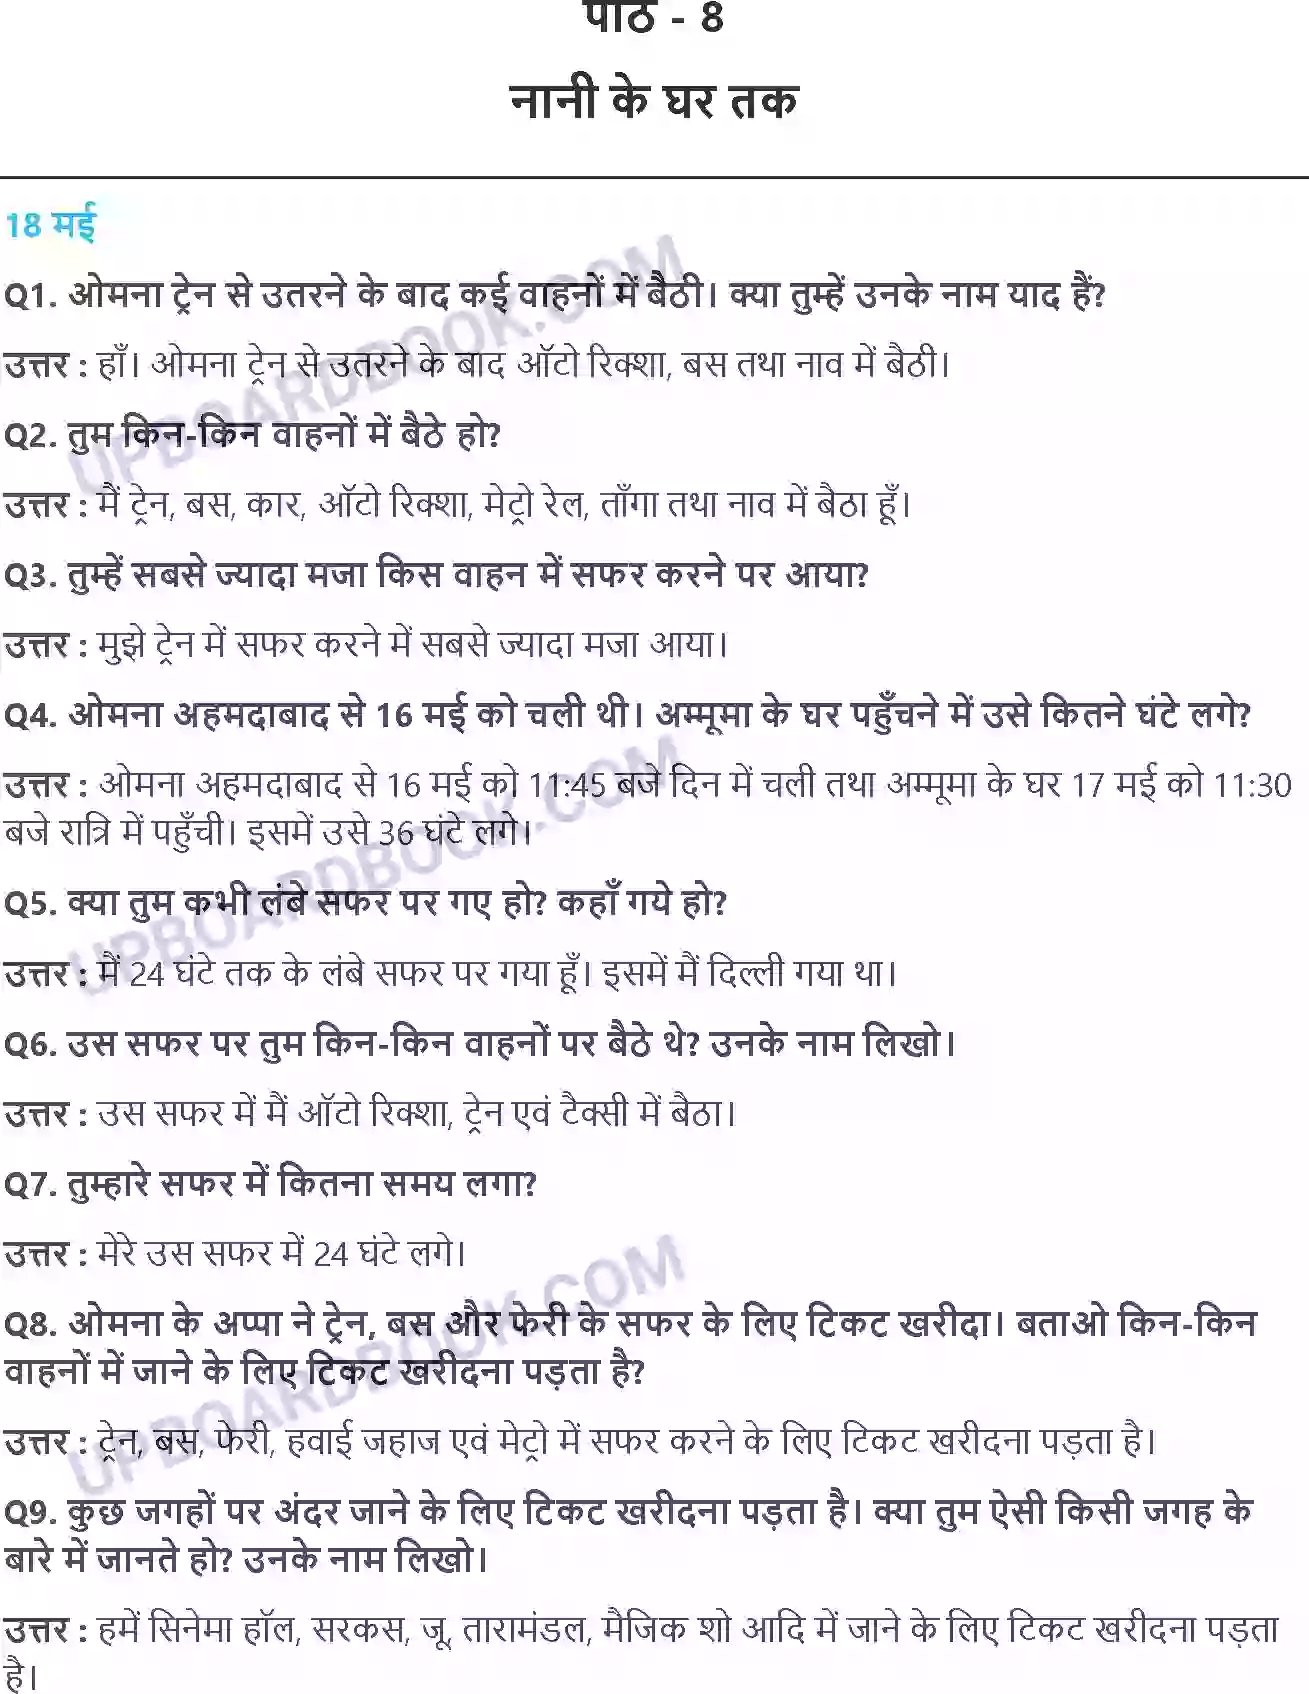 पाठ - 8
नानी के घर तक
18 मई
Q1. ओमना ट्रेन से उतरने के बाद कई वाहनों में बैठी। क्या तुम्हें उनके नाम याद हैं?
उत्तर : हाँ। ओमना ट्रेन से उतरने के बाद ऑटो रिक्शा, बस तथा नाव में बैठी।
Q2. तुम किन-किन वाहनों में बैठे हो?
उत्तर : मैं ट्रेन, बस, कार, ऑटो रिक्शा, मेट्रो रेल, ताँगा तथा नाव में बैठा हूँ।
Q3. तुम्हें सबसे ज्यादा मजा किस वाहन में सफर करने पर आया?
उत्तर : मुझे ट्रेन में सफर करने में सबसे ज्यादा मजा आया।
Q4. ओमना अहमदाबाद से 16 मई को चली थी। अम्मूमा के घर पहुँचने में उसे कितने घंटे लगे?
उत्तर : ओमना अहमदाबाद से 16 मई को 11:45 बजे दिन में चली तथा अम्मूमा के घर 17 मई को 11:30
बजे रात्रि में पहुँची। इसमें उसे 36 घंटे लगे।
Q5. क्या तुम कभी लंबे सफर पर गए हो? कहाँ गये हो?
उत्तर : मैं 24 घंटे तक के लंबे सफर पर गया हूँ। इसमें मैं दिल्ली गया था।
Q6. उस सफर पर तुम किन-किन वाहनों पर बैठे थे? उनके नाम लिखो।
उत्तर : उस सफर में मैं ऑटो रिक्शा, ट्रेन एवं टैक्सी में बैठा।
Q7. तुम्हारे सफर में कितना समय लगा?
उत्तर : मेरे उस सफर में 24 घंटे लगे।
Q8. ओमना के अप्पा ने ट्रेन, बस और फेरी के सफर के लिए टिकट खरीदा। बताओ किन-किन
वाहनों में जाने के लिए टिकट खरीदना पड़ता है?
उत्तर : ट्रेन, बस, फेरी, हवाई जहाज एवं मेट्रो में सफर करने के लिए टिकट खरीदना पड़ता है।
Q9. कुछ जगहों पर अंदर जाने के लिए टिकट खरीदना पड़ता है। क्या तुम ऐसी किसी जगह के
बारे में जानते हो? उनके नाम लिखो।
उत्तर : हमें सिनेमा हॉल, सरकस, जू, तारामंडल, मैजिक शो आदि में जाने के लिए टिकट खरीदना पड़ता
है।
UPBOARDBOOK.COM
UPBOARDBOOK.COM
UPBOARDBOOK.COM